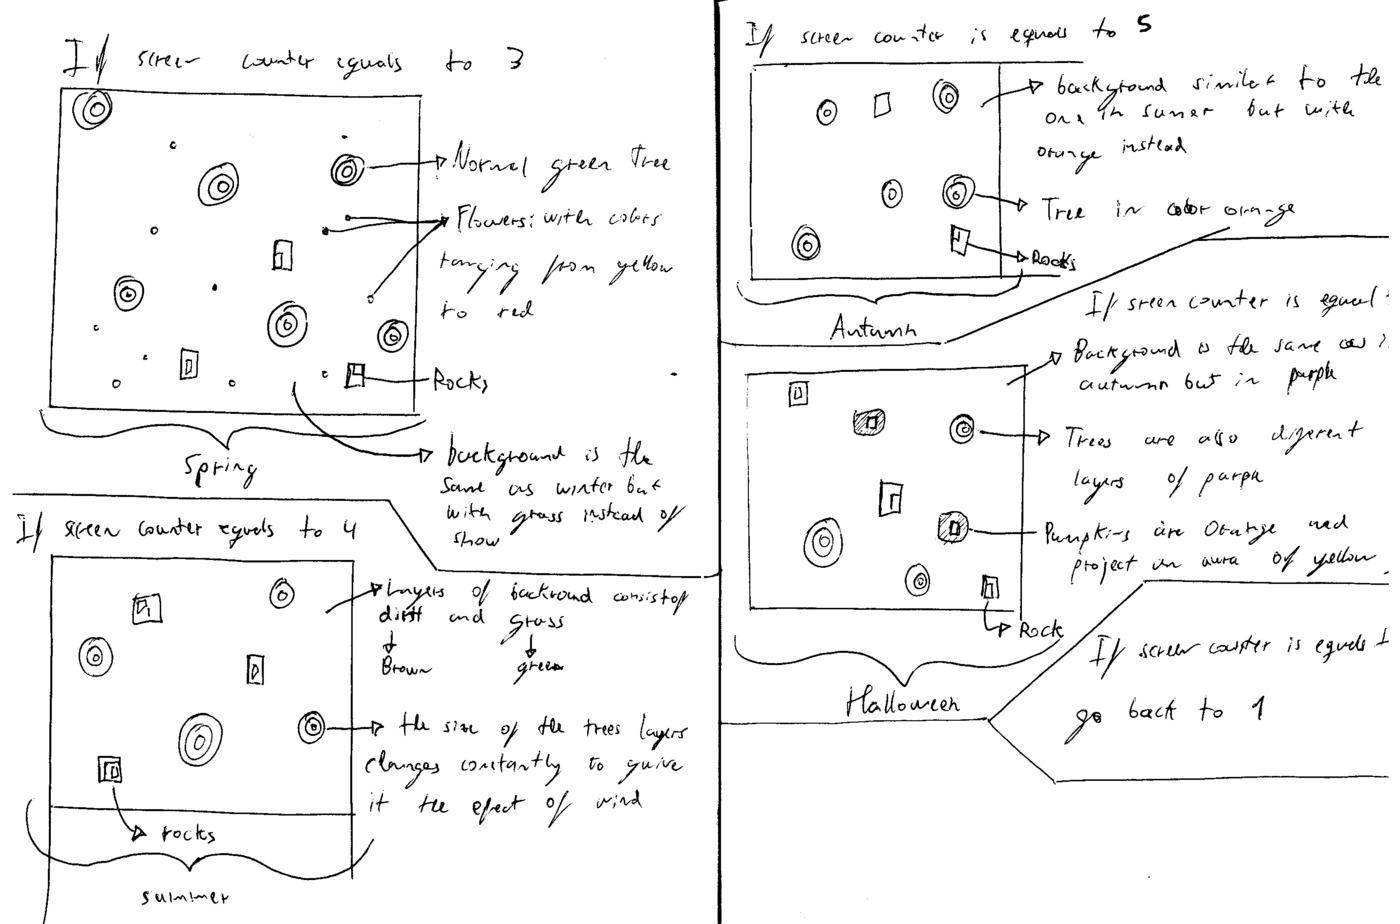 If screen counter equals to 3
Normal green Tree
Flowers: with colors
ranging from yellow
to red
Rocks
background is the
same as winter but
with grass instead of
show
Spring
If screen counter equals to 4
Layers of backround consist of
dirtt and grass
Brown green
the size of the trees layers
changes constantly to guive
it the efect of wind
rocks
summer
If screen counter is equals to 5
background similer to the
one in sumer but with
orange instead
Tree in color orange
Rocks
Autumn
If sreen counter is equal
Background is the same as
autumn but in purple
Trees are also diferent
layers of purple
Pumpkins are Orange and
project an aura of yellow
Rock
Halloween
If screen counter is equals
go back to 1